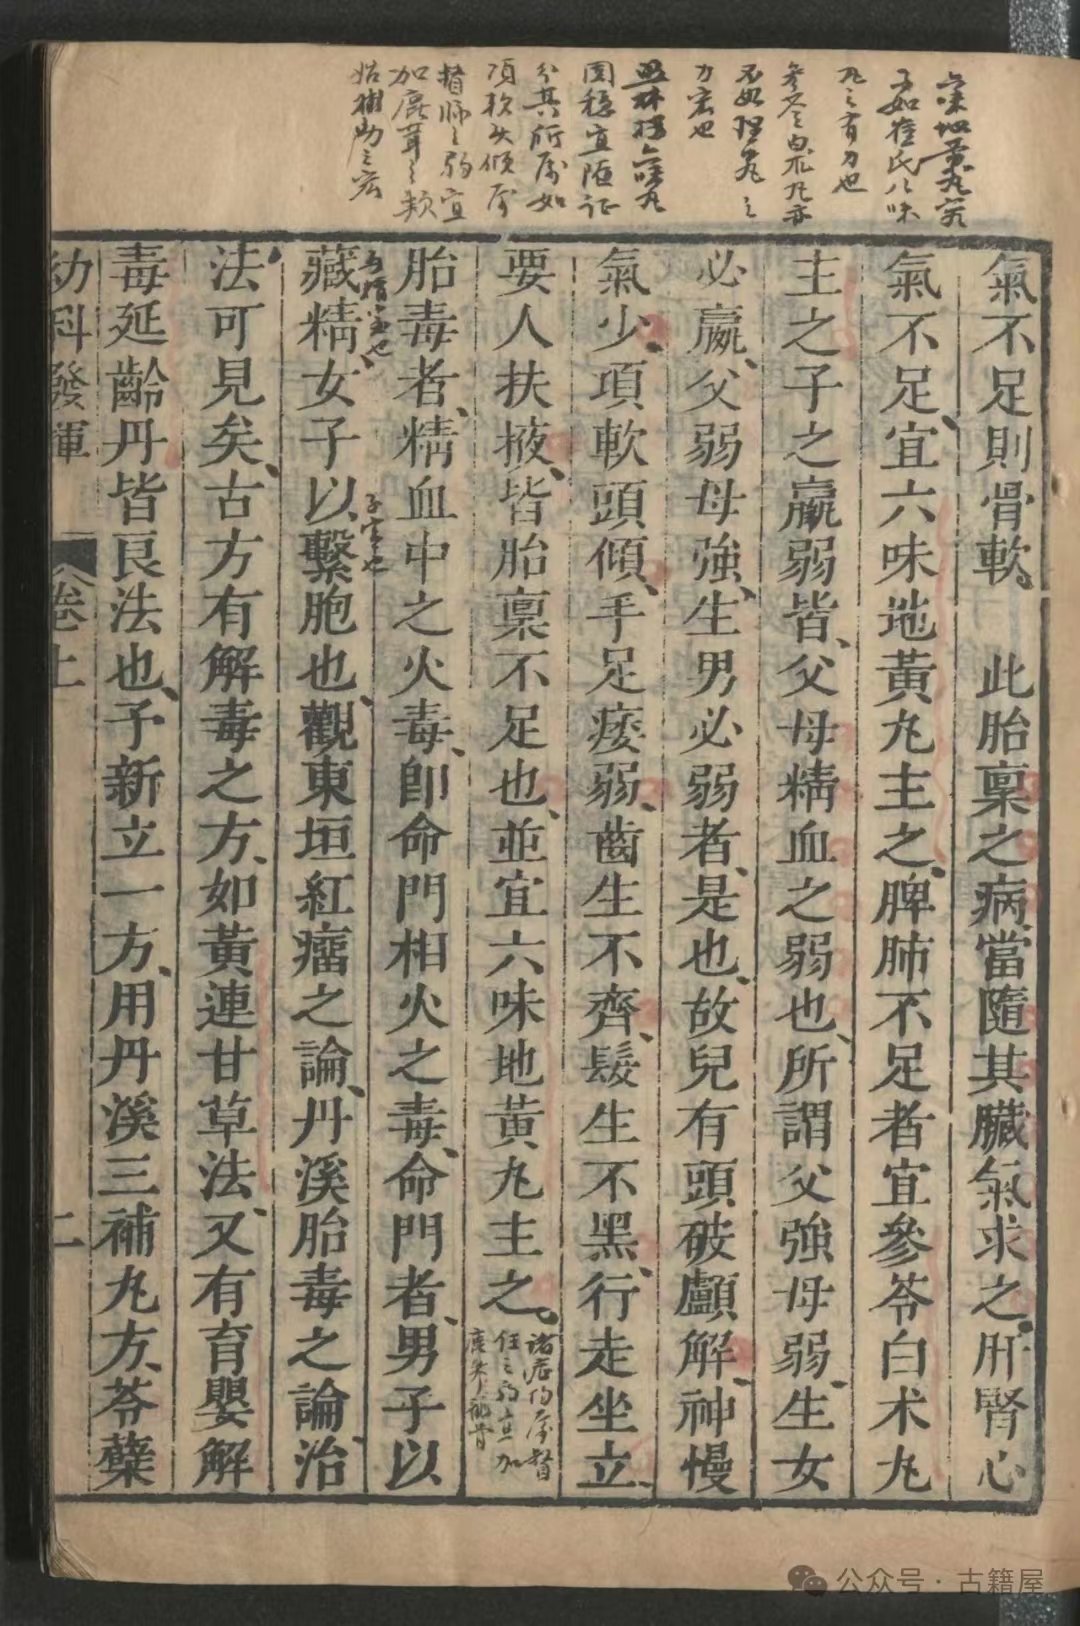 六味地黃丸實
不如崔氏八味
丸之有力也
參苓白朮丸亦
不如理丸之
力宏也
分其所屬如
項軟头傾屬
督師之弱宜
加鹿茸之類
氣不足則骨軟 此胎稟之病當隨其臟氣求之肝腎心
氣不足宜六味地黃丸主之脾肺不足者宜參苓白术丸
主之子之羸弱皆父母精血之弱也所謂父強母弱生女
必羸父弱母強生男必弱者是也故兒有頭破顱解神慢
氣少項軟頭傾手足痿弱齒生不齊髮生不黑行走坐立
要人扶掖皆胎稟不足也並宜六味地黃丸主之
胎毒者精血中之火毒即命門相火之毒命門者男子以
藏精女子以繫胞也觀東垣紅瘤之論丹溪胎毒之論治
子宮也
法可見矣古方有解毒之方如黃連甘草法又有育嬰解
毒延齡丹皆良法也予新立一方用丹溪三補丸方苓蘗
幼科發揮 卷上 二
公众号·古籍屋